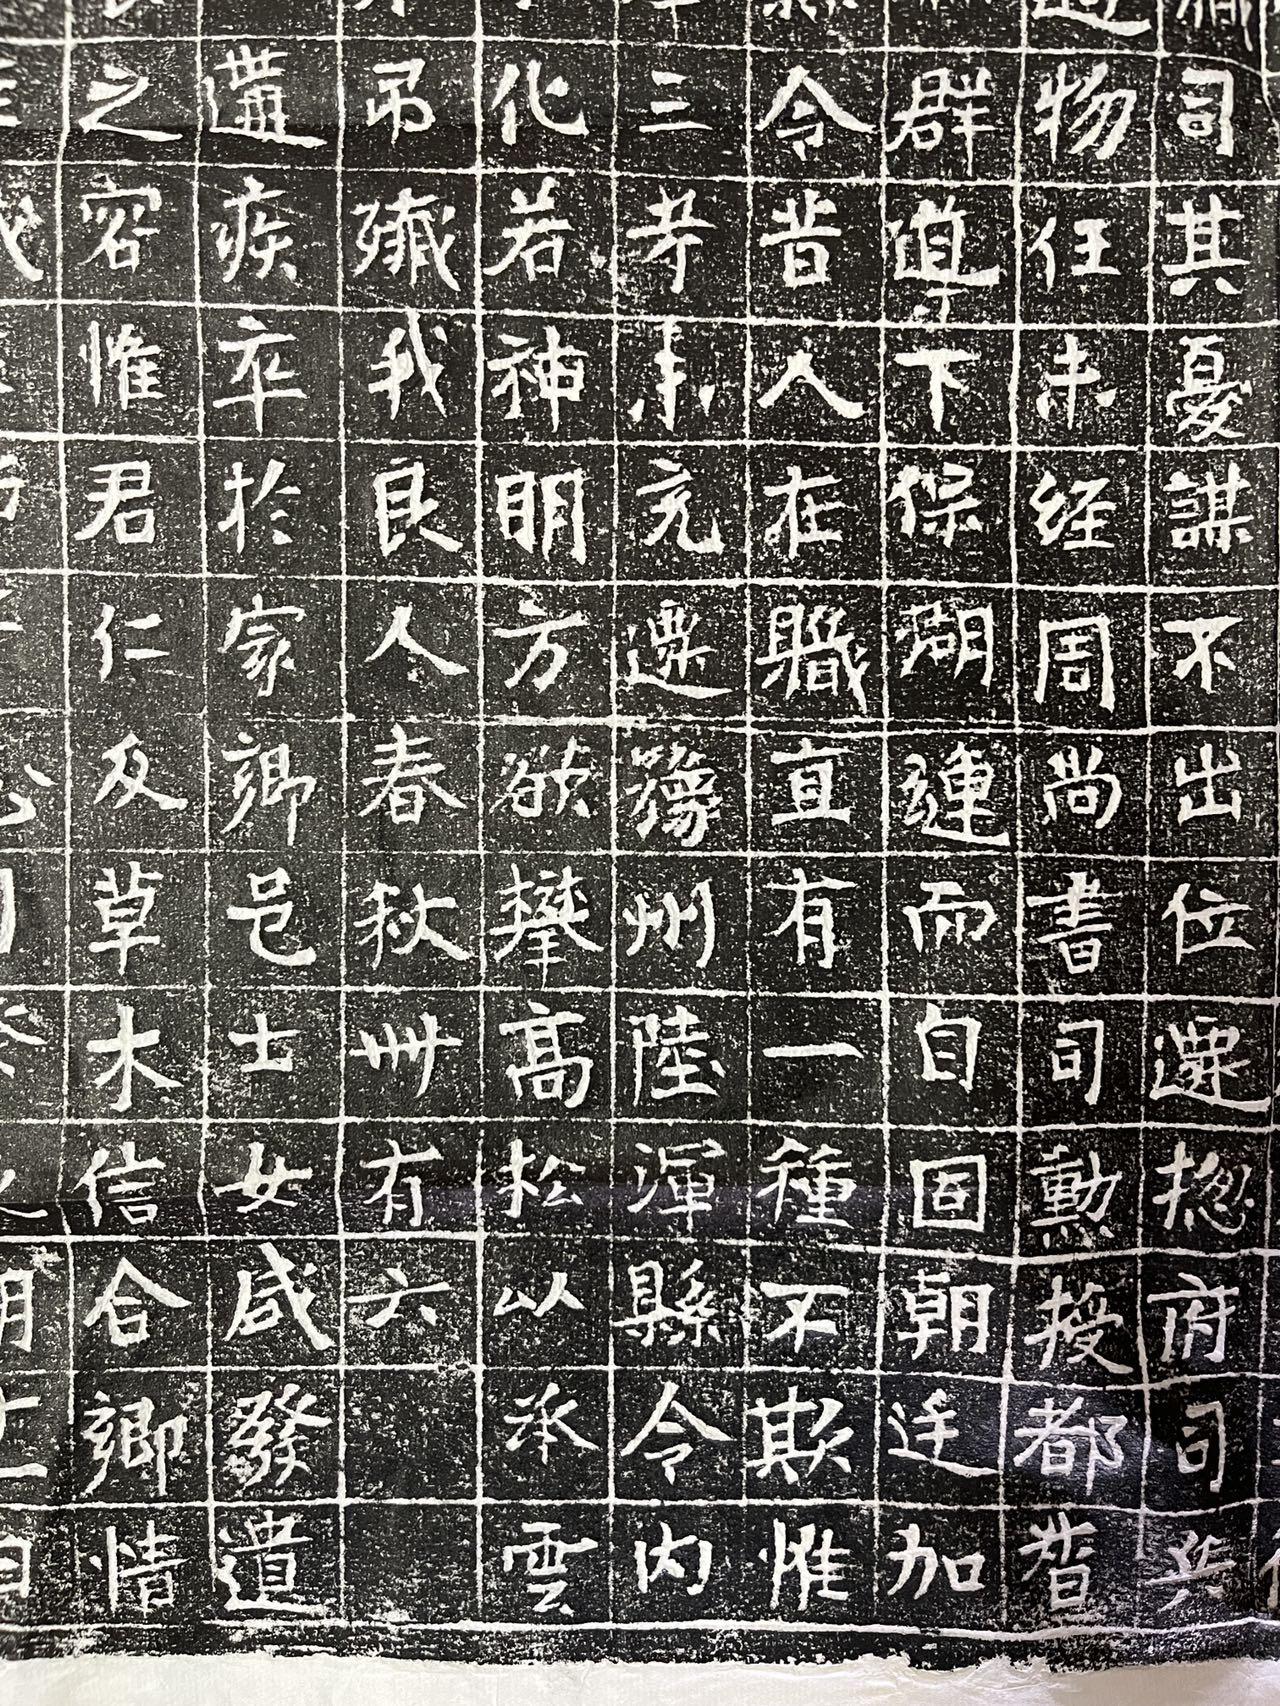 司其憂謀不出位遷揔府司兵
物任未經周尚書司勳授都督
群道下保湖連而自固朝廷加
令昔人在職直有一種不欺惟
三考未充遷豫州陸渾縣令内
化若神明方欲攀高松以承雲
弔殲我良人春秋卌有六
遘疾卒於家鄉邑士女咸發遺
之容惟君仁及草木信合鄉情